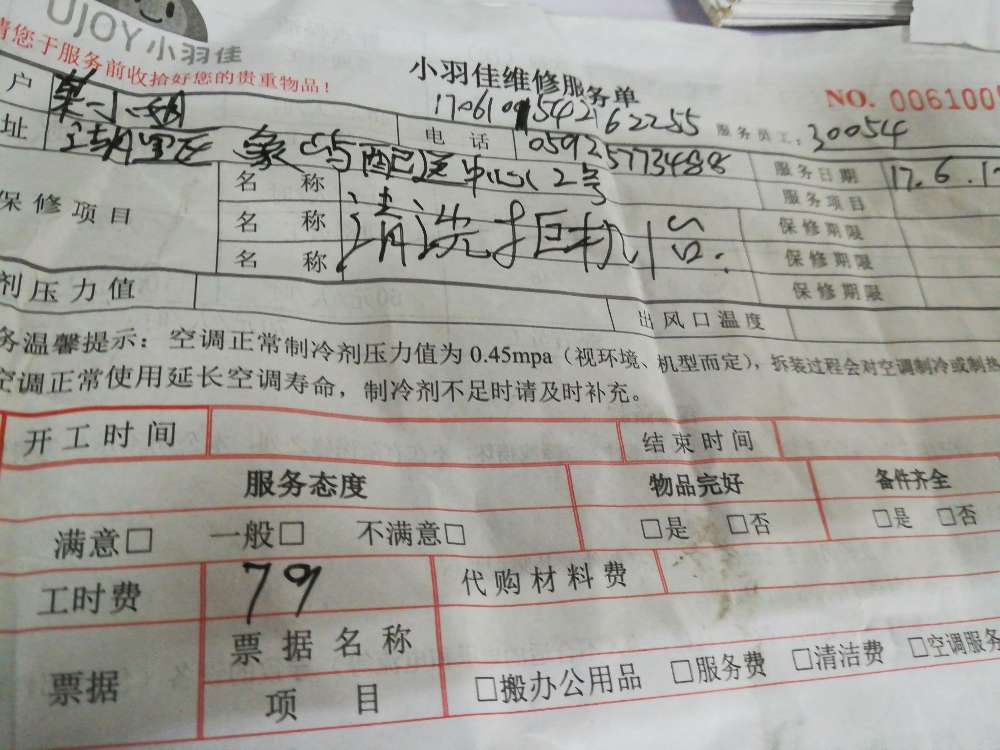 UJOY小羽佳
请您于服务前收拾好您的贵重物品！
小羽佳维修服务单
NO. 0061005
1706101542162255
服务员工：30054
户
址
电话
05925773488
服务日期
17.6.1
保修项目
名称
中心12号
服务项目
名称
清洗
机1台.
保修期限
名称
保修期限
保修期限
剂压力值
出风口温度
务温馨提示：空调正常制冷剂压力值为0.45mpa（视环境、机型而定），拆装过程会对空调制冷或制热
空调正常使用延长空调寿命，制冷剂不足时请及时补充。
开工时间
结束时间
服务态度
物品完好
备件齐全
满意□ 一般□ 不满意□
□是 □否
□是 □否
工时费
79
代购材料费
票据
票据名称
项目
□搬办公用品 □服务费 □清洁费 □空调服务